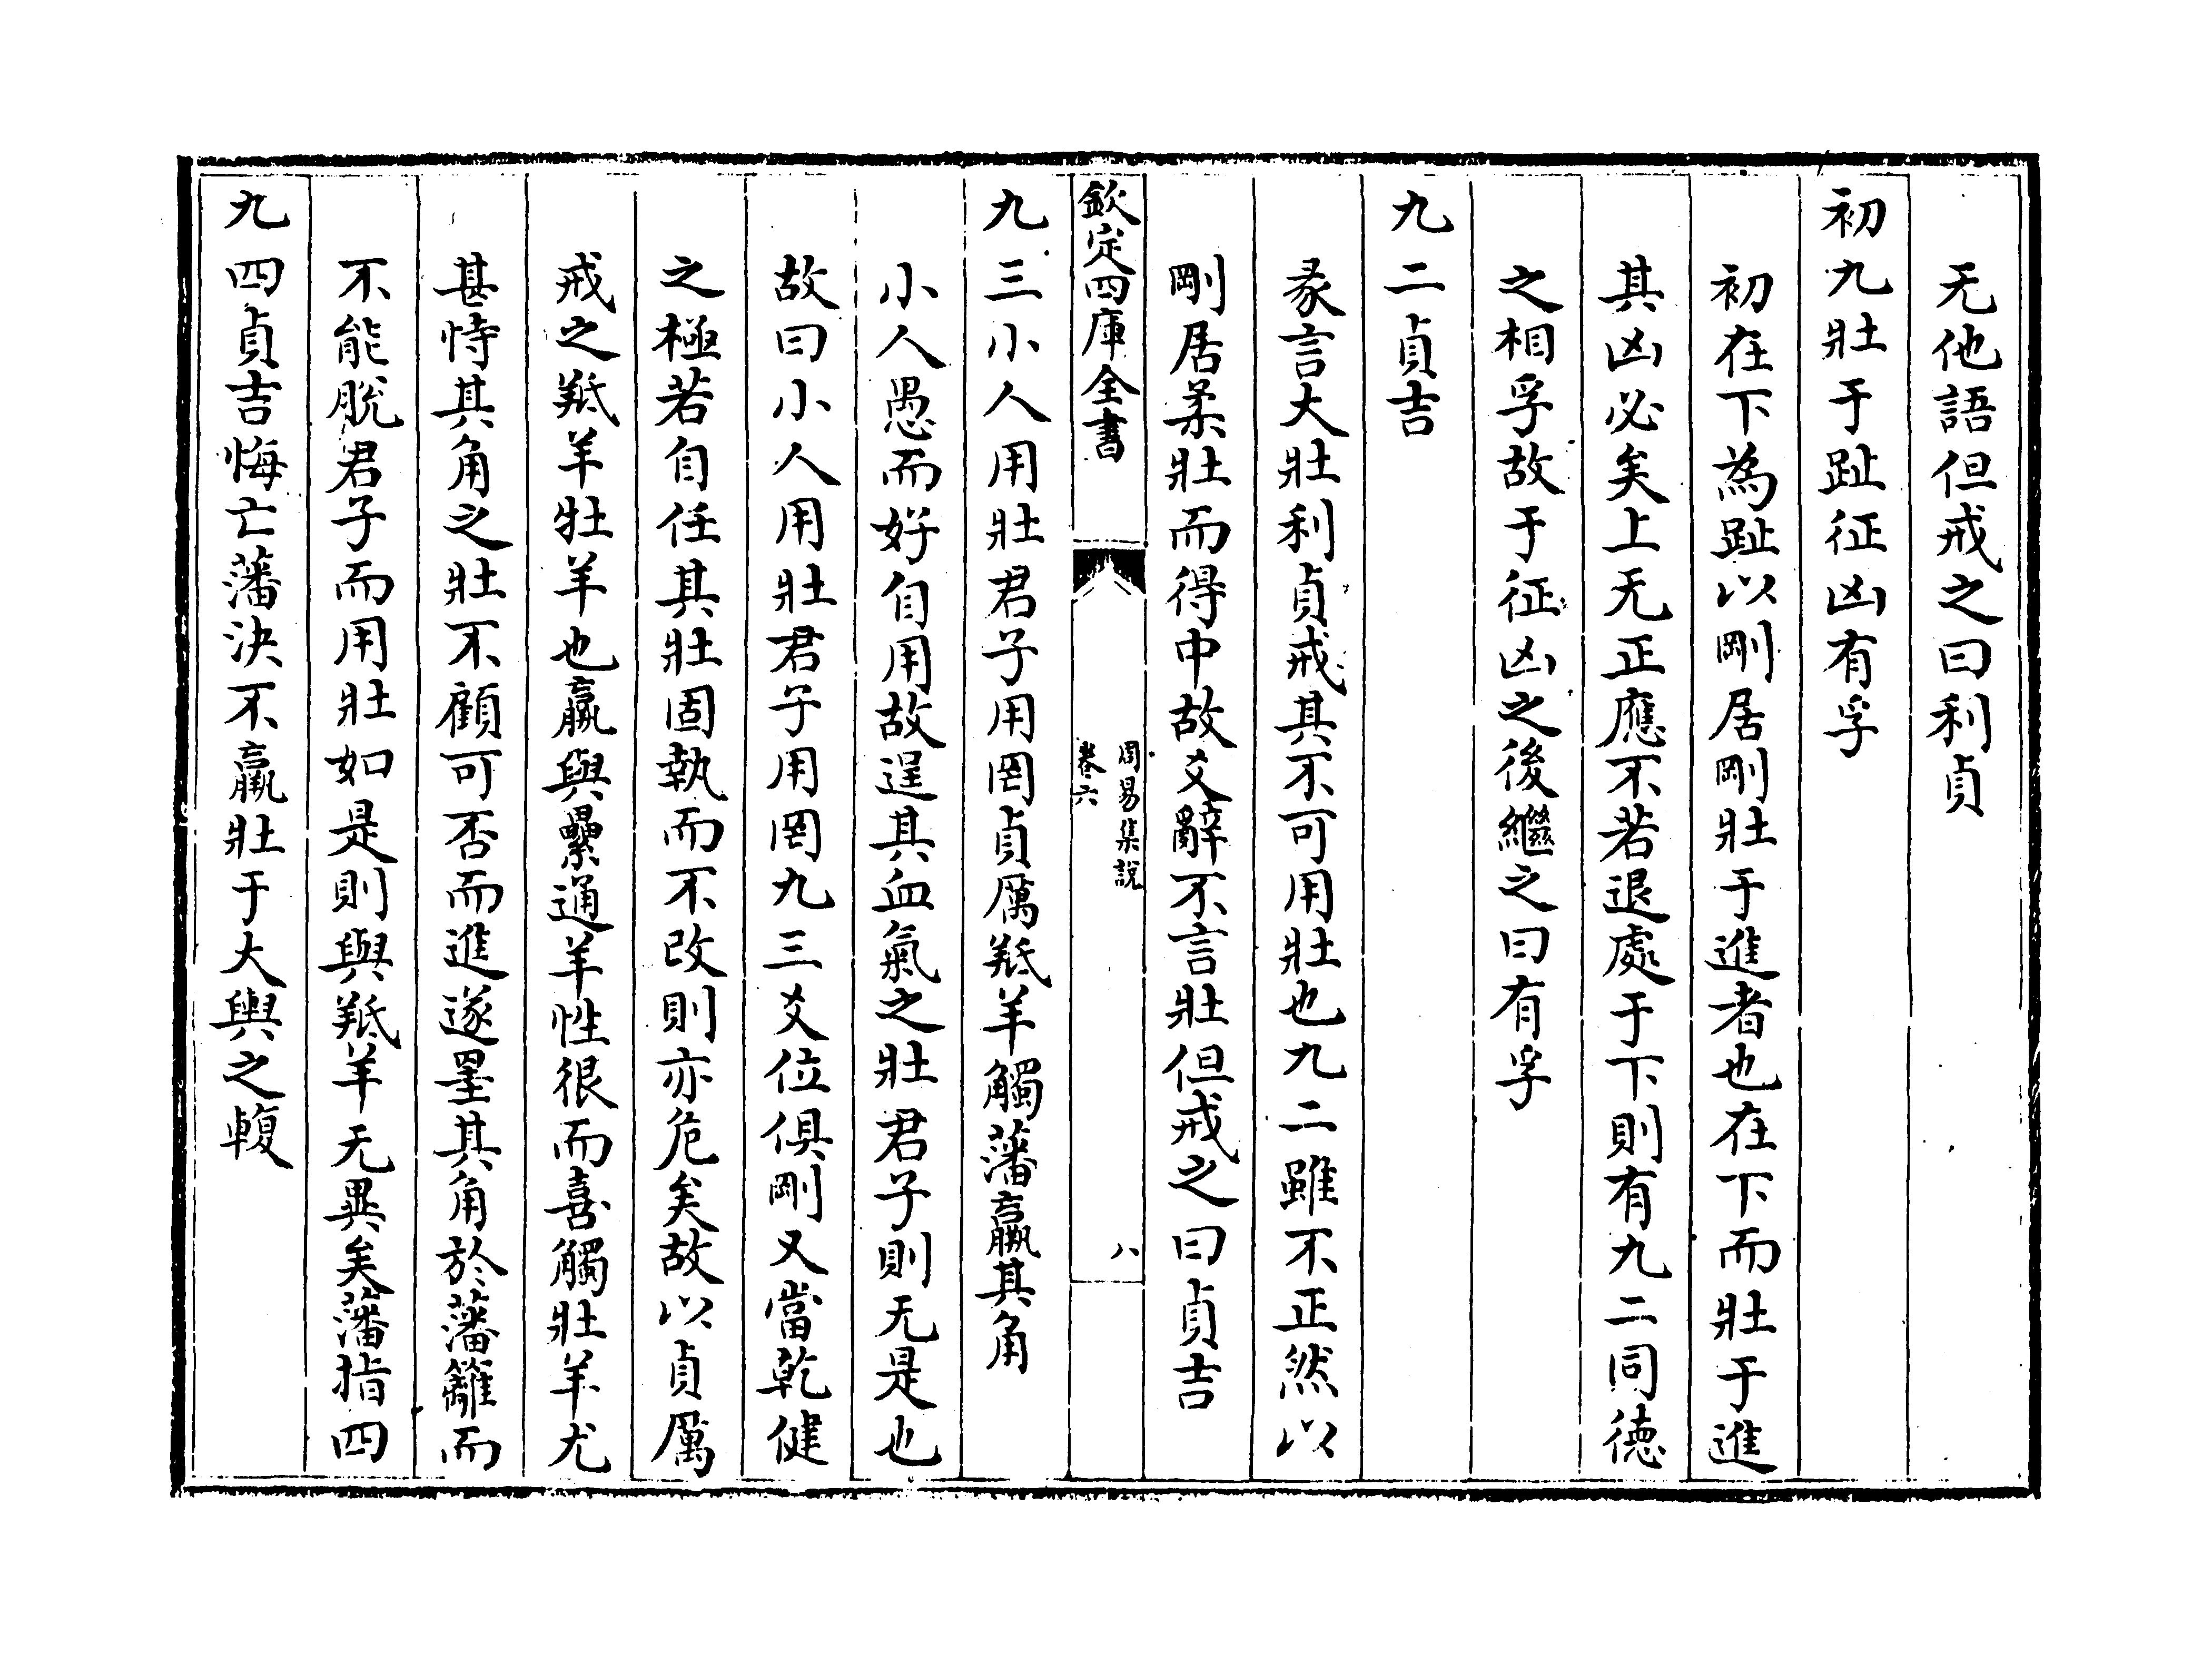 无他語但戒之曰利貞
初九壯于趾征凶有孚
初在下為趾以剛居剛壯于進者也在下而壯于進
其凶必矣上无正應不若退處于下則有九二同徳
之相孚故于征凶之後繼之曰有孚
九二貞吉
彖言大壯利貞戒其不可用壯也九二雖不正然以
剛居柔壯而得中故爻辭不言壯但戒之曰貞吉
欽定四庫全書
周易集説
卷六
八
九三小人用壯君子用罔貞厲羝羊觸藩羸其角
小人愚而好自用故逞其血氣之壯君子則无是也
故曰小人用壯君子用罔九三爻位俱剛又當乾健
之極若自任其壯固執而不改則亦危矣故以貞厲
戒之羝羊牡羊也羸與纍通羊性很而喜觸壯羊尤
甚恃其角之壯不顧可否而進遂罣其角於藩籬而
不能脫君子而用壯如是則與羝羊无異矣藩指四
九四貞吉悔亡藩決不羸壯于大輿之輹